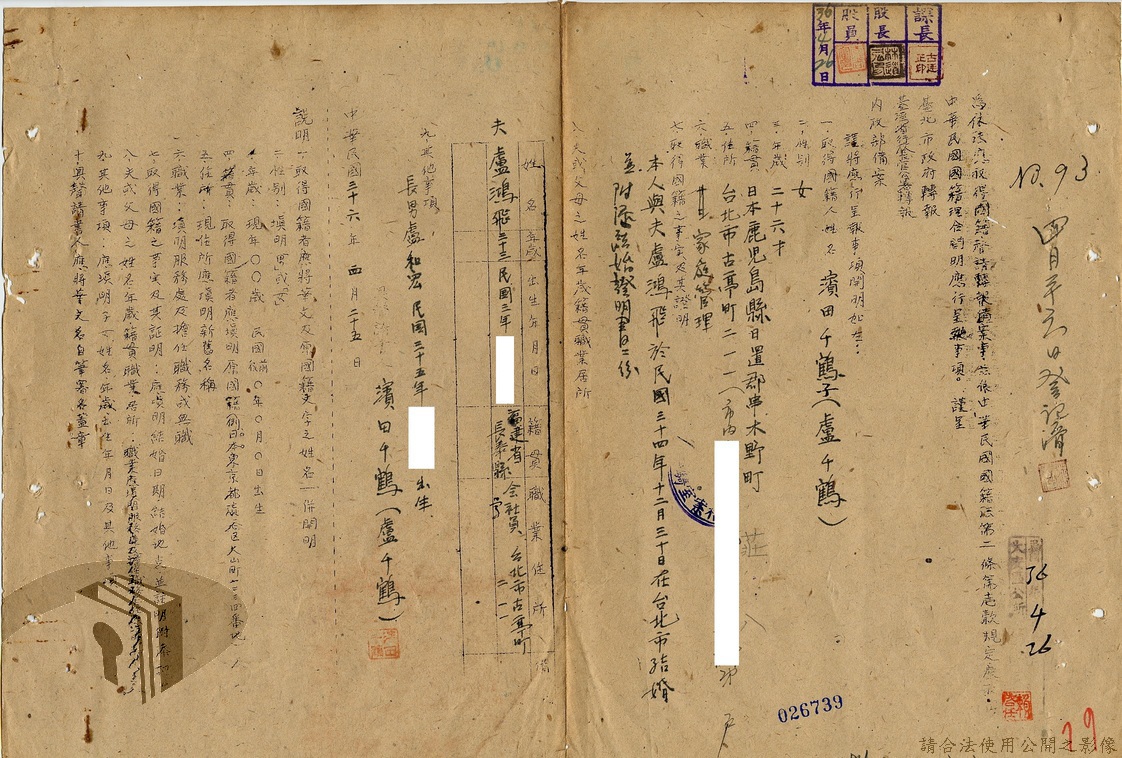 課長
股長
股員
36年4月26日
NO. 93
四月廿六日登記濟
36 4 26
為依法應取得國籍聲請轉報備案事:茲依中華民國國籍法第二條第壱款規定應
中華民國國籍理合聲明應行呈報事項。謹呈
臺北市政府轉報
內政部備案
謹將應行呈報事項開明如左:
一、取得國籍人姓名 濱田千鶴子(盧千鶴)
二、性別 女
三、年歲 二十六才
四、籍貫 日本鹿児島縣日置郡串木野町
五、住所 台北市古亭町二一一(市內
六、職業 家庭管理
七、取得國籍之事实及其證明
本人與夫盧鴻飛於民國三十四年十二月三十日在台北市結婚
並附深結婚證明書二份
八、夫或父母之姓名年歲籍貫職業居所
姓名 年歲 出生年月日 籍貫 職業 住所 備
夫 盧鴻飛 三十三 民國三年 福建省長泰縣 会社員 台北市古亭町二一一
九、其他事項
長男盧和宏 民國三十五年 出生
濱田千鶴(盧千鶴)
中華民國三十六年 四月 二十五日
說明
一、取得國籍者應將華文及原國籍文字之姓名一併開明
二、性別:填明男或女
三、年歲 現年〇〇歲 民國前〇年〇月〇日出生
四、籍貫:取得國籍者應填明原國籍例日本東京都
五、住所:現住所應填明新舊名稱
六、職業:填明服務處及擔任職務或無職
七、取得國籍之事实及其証明:應填明結婚日期結婚地點並証明附添
八、夫或父母之姓名年歲籍貫職業居所:
九、其他事項:應填明子女姓名年歲出生年月日及其他事項
十、與聲請書人應將華文名自筆簽名蓋章
026739
29
請合法使用公開之影像